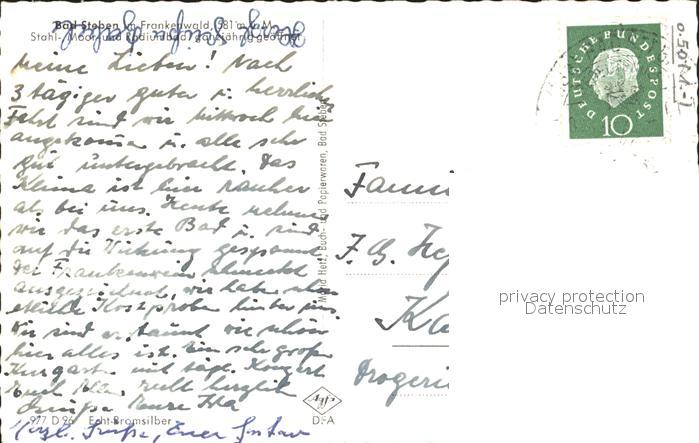 Bad Steben im Frankenwald, 581 m ü. M.
Stahl-, Moor- und Radiumbad / ganzjährig geöffnet
Meine Lieben! Nach
3 tägiger guter u. herrlicher
Fahrt sind wir Mittwoch hier
angekommen u. alle sehr
gut untergebracht. Das
Klima ist hier rauher
als bei uns. Heute nehmen
wir das erste Bad u. sind
auf die Wirkung gespannt.
Der Frankenwein schmeckt
ausgezeichnet, wir haben schon
etliche Kostproben hinter uns.
Wir sind erstaunt wie schön
hier alles ist. Ein sehr großer
Kurgarten mit tägl. Konzert
Euch allen recht herzliche
Grüße Eure
Herzl. Grüße, Euer Gustav
977 D 96 Echt-Bromsilber
Buch- und Papierwaren, Bad Steben
Agfa
DFA
DEUTSCHE BUNDESPOST
10
Fami
F. G. He
Ka
Drogeri
privacy protection
Datenschutz